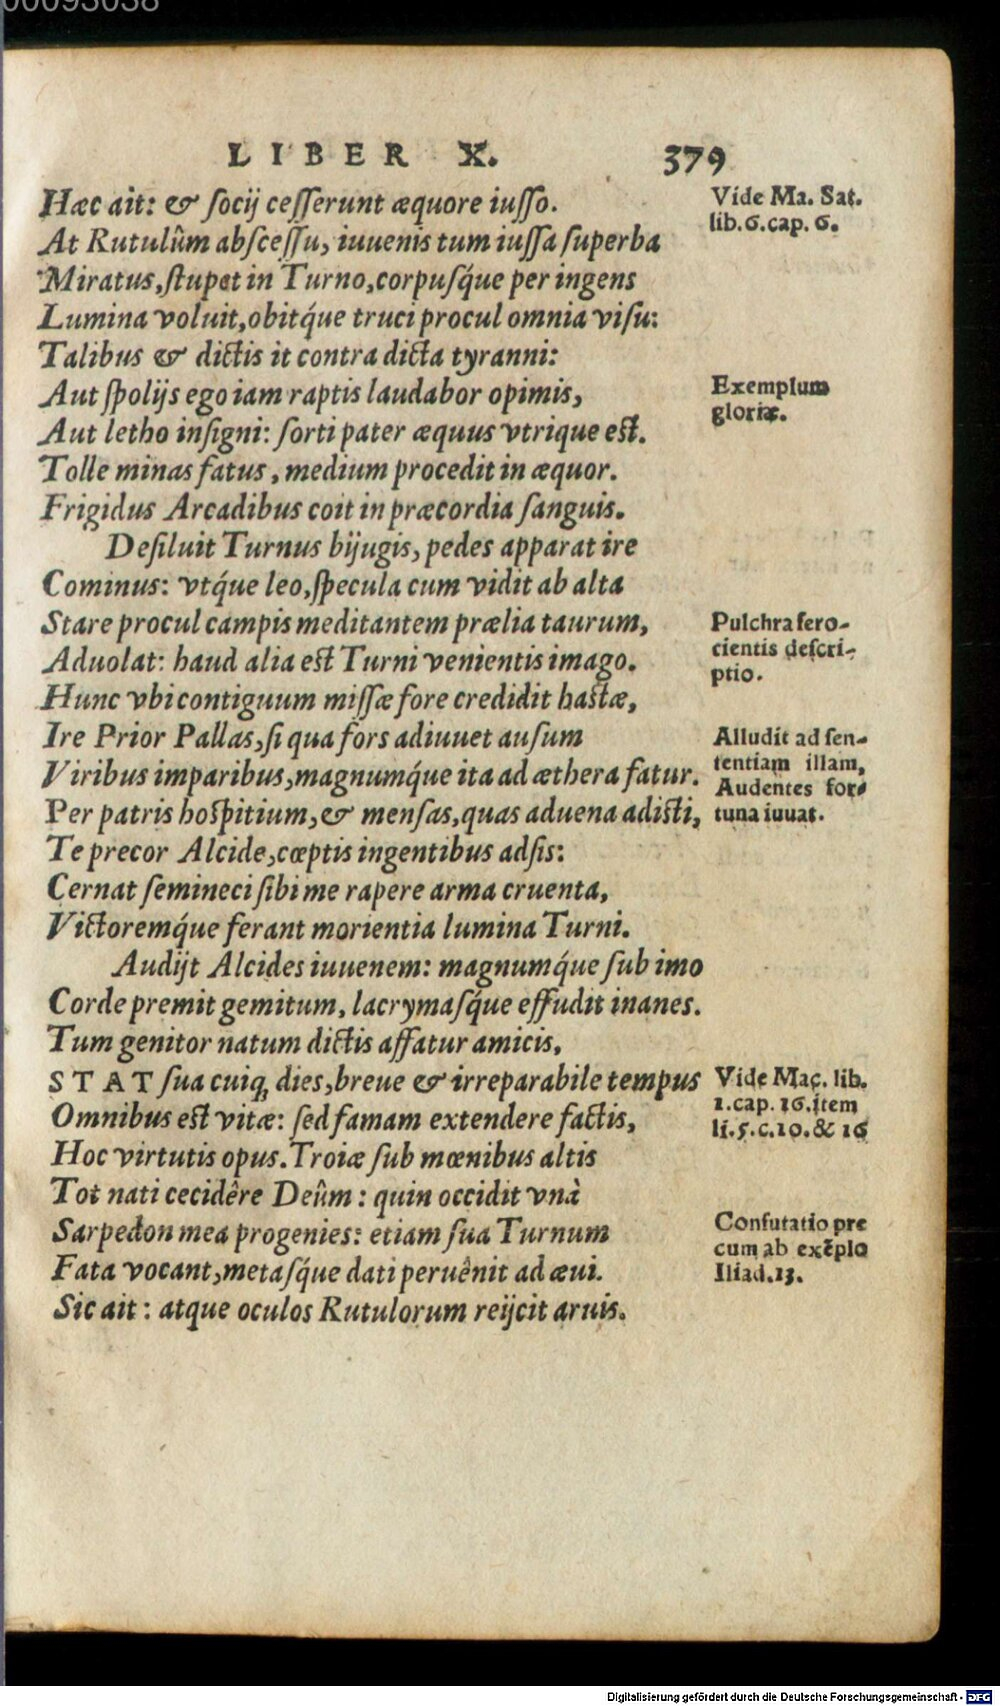 00093038
LIBER X. 379
Hæc ait: & ſocij ceſſerunt æquore iuſſo.
Vide Ma. Sat.
lib.6.cap. 6.
At Rutulûm abſceſſu, iuuenis tum iuſſa ſuperba
Miratus, ſtupet in Turno, corpuſq́ue per ingens
Lumina voluit, obitq́ue truci procul omnia viſu:
Talibus & dictis it contra dicta tyranni:
Aut ſpolijs ego iam raptis laudabor opimis,
Exemplum
gloriæ.
Aut letho inſigni: ſorti pater æquus vtrique eſt.
Tolle minas fatus, medium procedit in æquor.
Frigidus Arcadibus coit in præcordia ſanguis.
Deſiluit Turnus bijugis, pedes apparat ire
Cominus: vtq́ue leo, ſpecula cum vidit ab alta
Stare procul campis meditantem prælia taurum,
Pulchra fero-
cientis deſcri-
ptio.
Aduolat: haud alia eſt Turni venientis imago.
Hunc vbi contiguum miſſæ fore credidit haſtæ,
Ire Prior Pallas, ſi qua fors adiuuet auſum
Alludit ad ſen-
tentiam illam,
Audentes for-
tuna iuuat.
Viribus imparibus, magnumq́ue ita ad æthera fatur.
Per patris hoſpitium, & menſas, quas aduena adiſti,
Te precor Alcide, cœptis ingentibus adſis:
Cernat ſemineci ſibi me rapere arma cruenta,
Victoremq́ue ferant morientia lumina Turni.
Audijt Alcides iuuenem: magnumq́ue ſub imo
Corde premit gemitum, lacrymaſq́ue effudit inanes.
Tum genitor natum dictis affatur amicis,
STAT ſua cuiq; dies, breue & irreparabile tempus
Vide Mac. lib.
1.cap. 16.item
li.5.c.10.& 16
Omnibus eſt vitæ: ſed famam extendere factis,
Hoc virtutis opus. Troiæ ſub mœnibus altis
Tot nati cecidêre Deûm: quin occidit vnà
Sarpedon mea progenies: etiam ſua Turnum
Confutatio pre
cum ab exẽplo
Iliad.13.
Fata vocant, metaſq́ue dati peruênit ad æui.
Sic ait: atque oculos Rutulorum reijcit aruis.
Digitalisierung gefördert durch die Deutsche Forschungsgemeinschaft - DFG